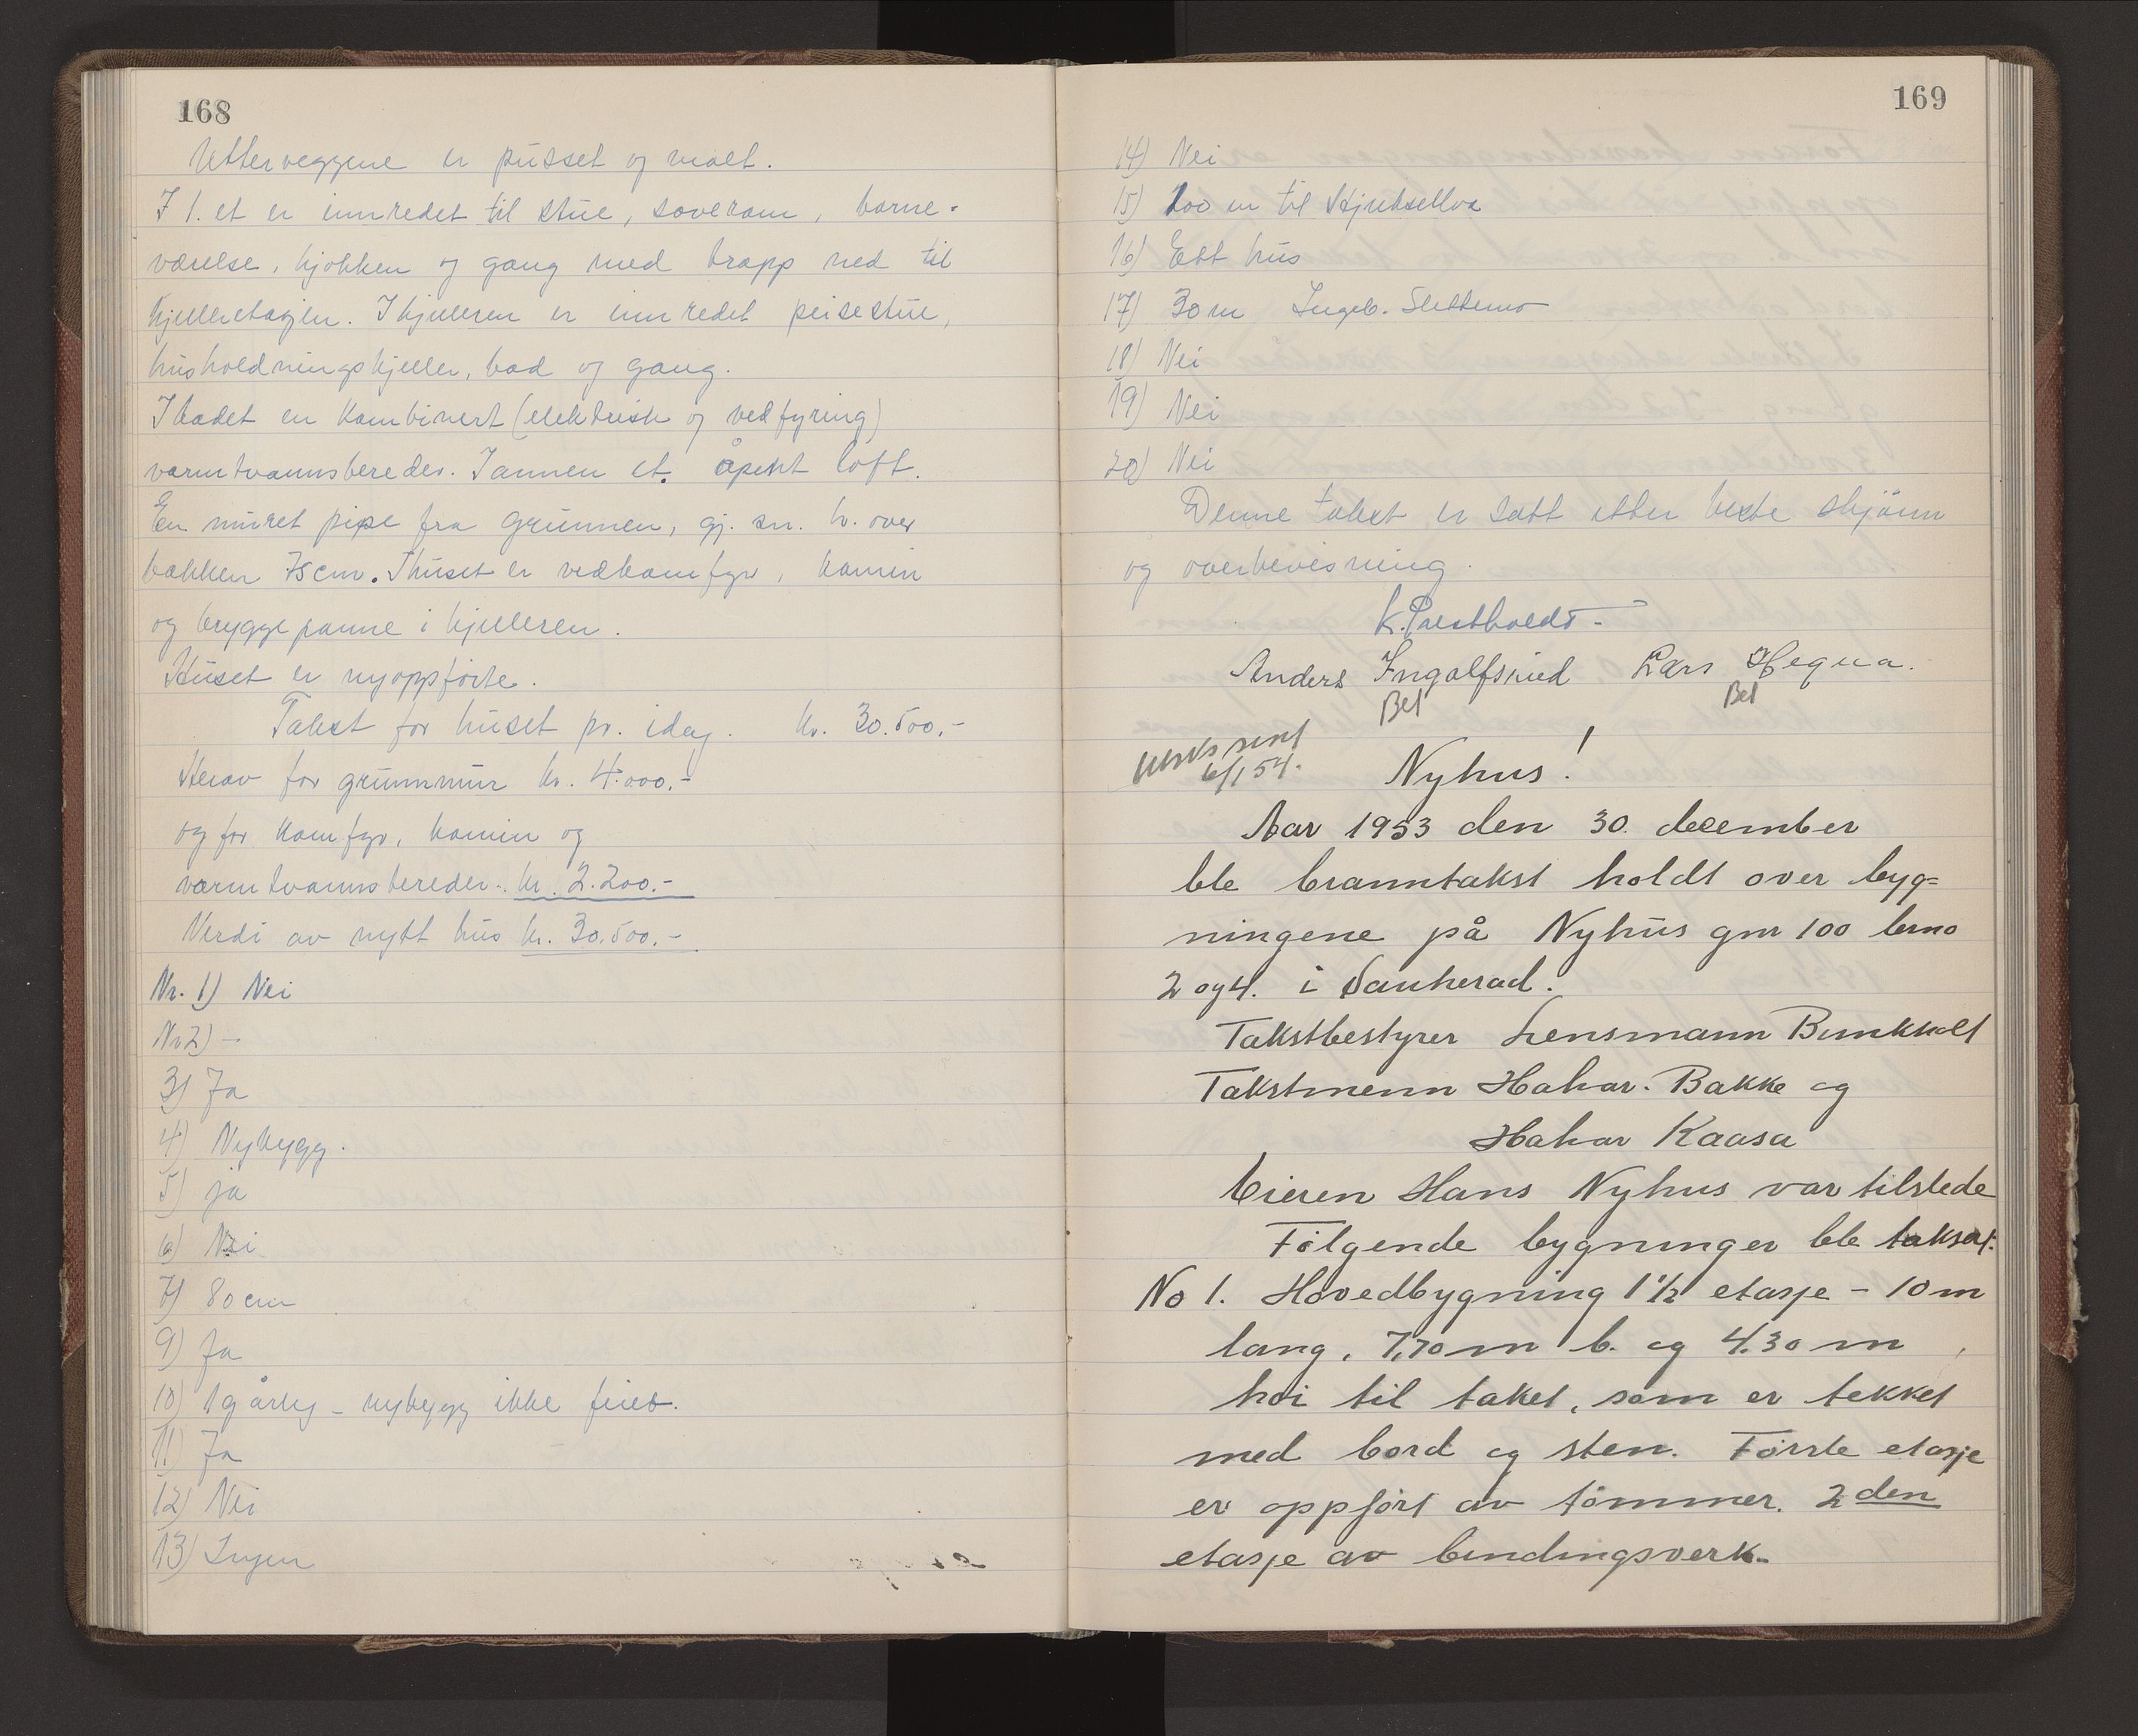 168
Utterveggene er pusset og malt.
I 1. et er innredet til stue, soverom, barne-
værelse, kjøkken og gang med trapp ned til
kjelleretasjen. I kjelleren er innredet peisestue,
husholdningskjeller, bad og gang.
I badet en kombinert (elektrisk og vedfyring)
varmtvannsbereder. I annen et. åpent loft.
En muret pipe fra grunnen, gj. sn. h. over
bakken 75 cm. I huset er vedkomfyr, kamin
og bryggepanne i kjelleren.
Huset er nyoppførte.
Takst for huset pr. idag. kr. 30.500.-
Herav for grunnmur kr. 4.000.-
og for komfyr, kamin og
varmtvannsbereder. kr. 2.200.-
Verdi av nytt hus kr. 30.500.-
Nr. 1) Nei
Nr 2) -
3) Ja
4) Nybygg.
5) ja
6) Nei
7) 80 cm
9) Ja
10) 1 g årlig - nybygg ikke feiet.
11) Ja
12) Nei
13) Ingen
169
14) Nei
15) 200 m til Hjuksellva
16) Ett hus
17) 30 m Ingeb. Slettemo
18) Nei
19) Nei
20) Nei
Denne takst er satt etter beste skjønn
og overbevisning.
K. Prestholdt -
Anders Ingolfsrud Lars Hegna.
Bet Bet
sent
6/1 54.
Nyhus!
Aar 1953 den 30. december
ble branntakst holdt over byg=
ningene på Nyhus gnr 100 brno
2 og 4. i Sauherad.
Takstbestyrer Lensmann Bunkholt
Takstmenn Hakar. Bakke og
Hakar Kaasa
Eieren Hans Nyhus var tilstede
Følgende bygninger ble taksert.
No 1. Hovedbygning 1 1/2 etasje - 10 m
lang, 7,70 m b. og 4.30 m
høi til taket, som er tekket
med bord og sten. Første etasje
er oppført av tømmer. 2 den
etasje av bindingsverk.